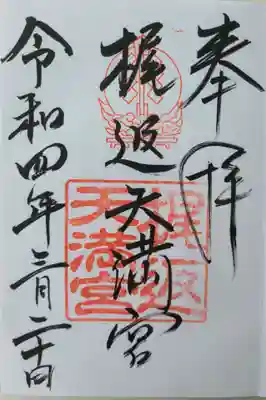 奉拝
梶返天満宮
令和四年三月二十日
梶返
天満宮